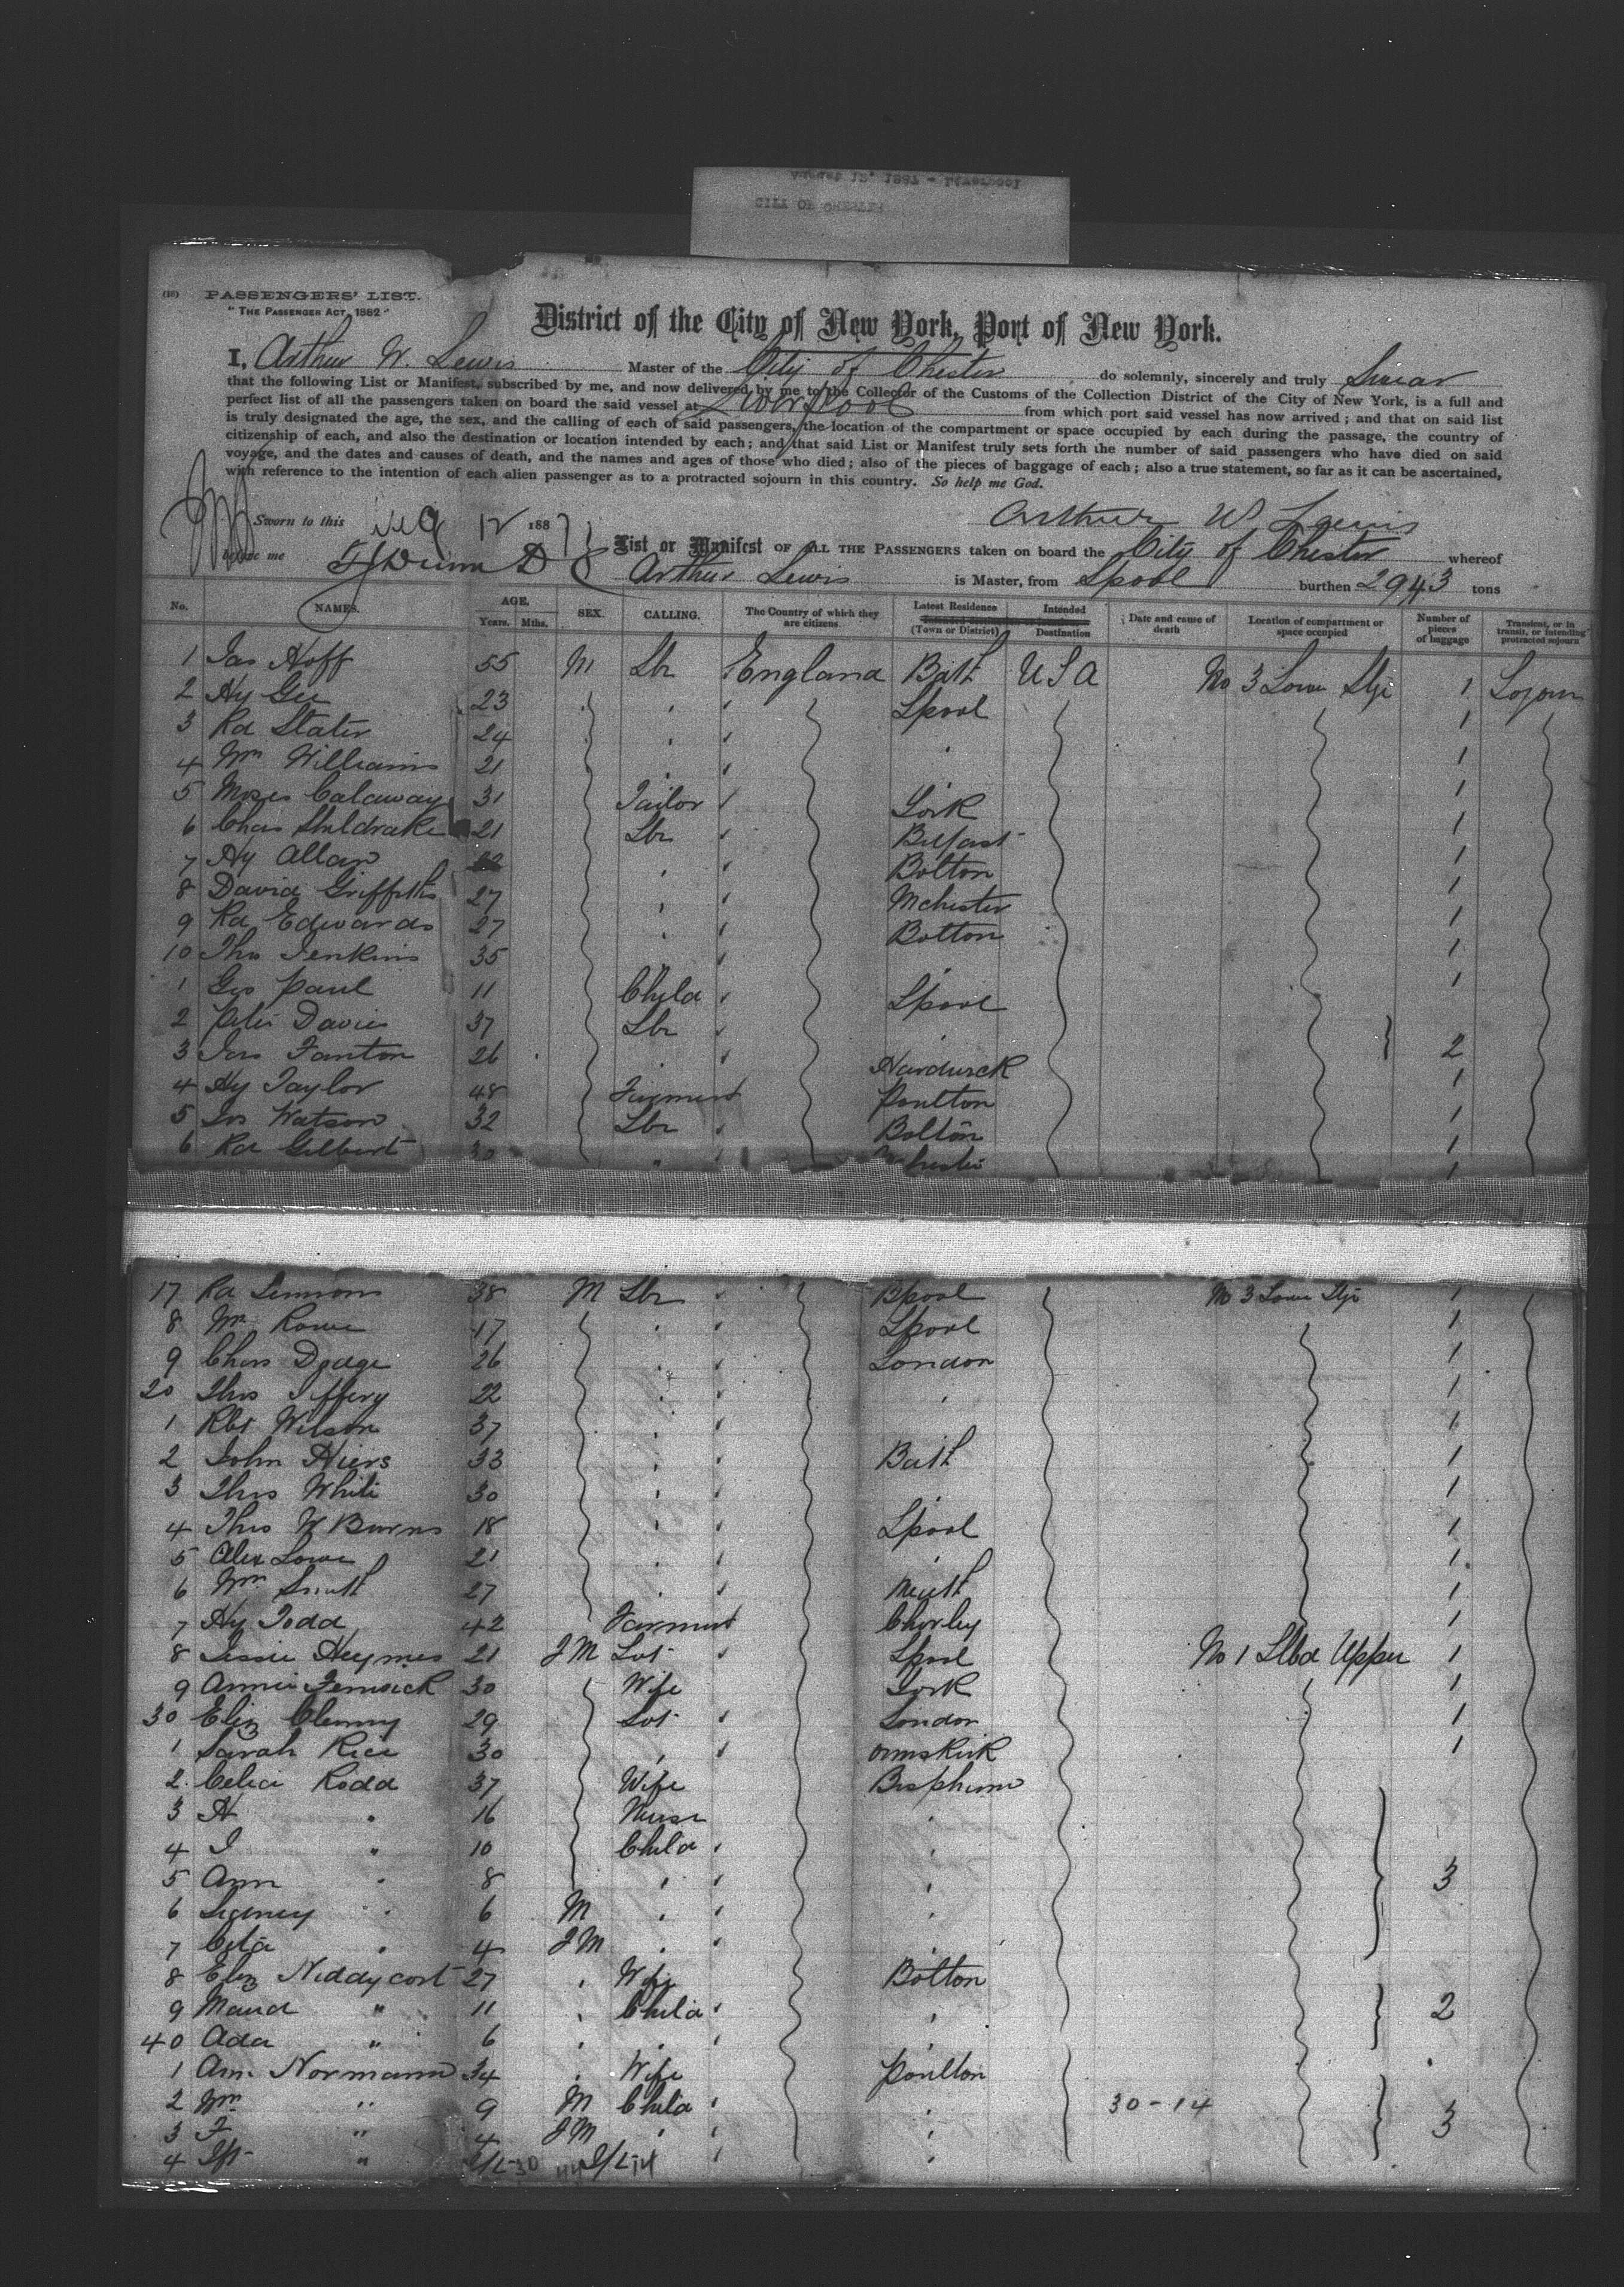 CITY OF CHESTER
(10) PASSENGERS' LIST.
"THE PASSENGER ACT, 1882"
District of the City of New York, Port of New York.
I, Arthur W. Lewis Master of the City of Chester do solemnly, sincerely and truly Swear
that the following List or Manifest, subscribed by me, and now delivered by me to the Collector of the Customs of the Collection District of the City of New York, is a full and
perfect list of all the passengers taken on board the said vessel at Liverpool from which port said vessel has now arrived; and that on said list
is truly designated the age, the sex, and the calling of each of said passengers, the location of the compartment or space occupied by each during the passage, the country of
citizenship of each, and also the destination or location intended by each; and that said List or Manifest truly sets forth the number of said passengers who have died on said
voyage, and the dates and causes of death, and the names and ages of those who died; also of the pieces of baggage of each; also a true statement, so far as it can be ascertained,
with reference to the intention of each alien passenger as to a protracted sojourn in this country. So help me God.
Arthur W Lewis
Sworn to this Aug 12 1887
before me
List or Manifest OF ALL THE PASSENGERS taken on board the City of Chester whereof
Arthur Lewis is Master, from Lpool burthen 2943 tons
No. NAMES. AGE. Years. Mths. SEX. CALLING. The Country of which they are citizens. Latest Residence (Town or District) Intended Destination Date and cause of death Location of compartment or space occupied Number of pieces of baggage Transient, or in transit, or intending protracted sojourn
1 Jas Hoff 55 M Lbr England Bath U S A No 3 Lower Stge 1 Sojourn
2 Hy Gee 23 Lpool 1
3 Rd Slater 24 1
4 Wm Williams 21 1
5 Moses Calaway 31 Tailor York 1
6 Chas Shildrake 21 Lbr Belfast 1
7 Hy Allan Bolton 1
8 David Griffiths 27 Mchester 1
9 Rd Edwards 27 Bolton 1
10 Thos Jenkins 35 1
1 Geo Paul 11 Child Lpool
2 Peter Davies 37 Lbr 2
3 Jas Fanton 26 1
4 Hy Taylor 48 Poulton 1
5 Jos Watson 32 Lbr Bolton 1
6 Rd Gilbert 30 " 1
17 Rd Lemons 38 M Lbr Bpool No 3 Lower Stge 1
8 Wm Rowe 17 Lpool 1
9 Chas Dodge 26 London 1
20 Thos Jeffery 22 1
1 Rbt Wilson 37 1
2 John Hiers 33 Bath 1
3 Thos White 30 1
4 Thos W Burns 18 Lpool 1
5 Alex Lowe 21 1
6 Wm Smith 27 Neith 1
7 Hy Todd 42 Chorley 1
8 Jessie Heymes 21 Lpool No 1 Stbd Upper 1
9 Annie Fenwick 30 Wife York 1
30 Eliz Clemmy 29 London 1
1 Sarah Rice 30 Ormskirk 1
2 Celia Rodd 37 Wife Bispham
3 H " 16 Nurse
4 J " 10 Child
5 Ann " 8 3
6 Sydney " 6 M
7 Celia " 4
8 Eliz Niddycort 27 Wife Bolton
9 Maud " 11 Child 2
40 Ada " 6
1 Ann Normann 34 Wife Poulton
2 Wm " 9 M Child 30-14
3 F " 4 3
4 Ift "